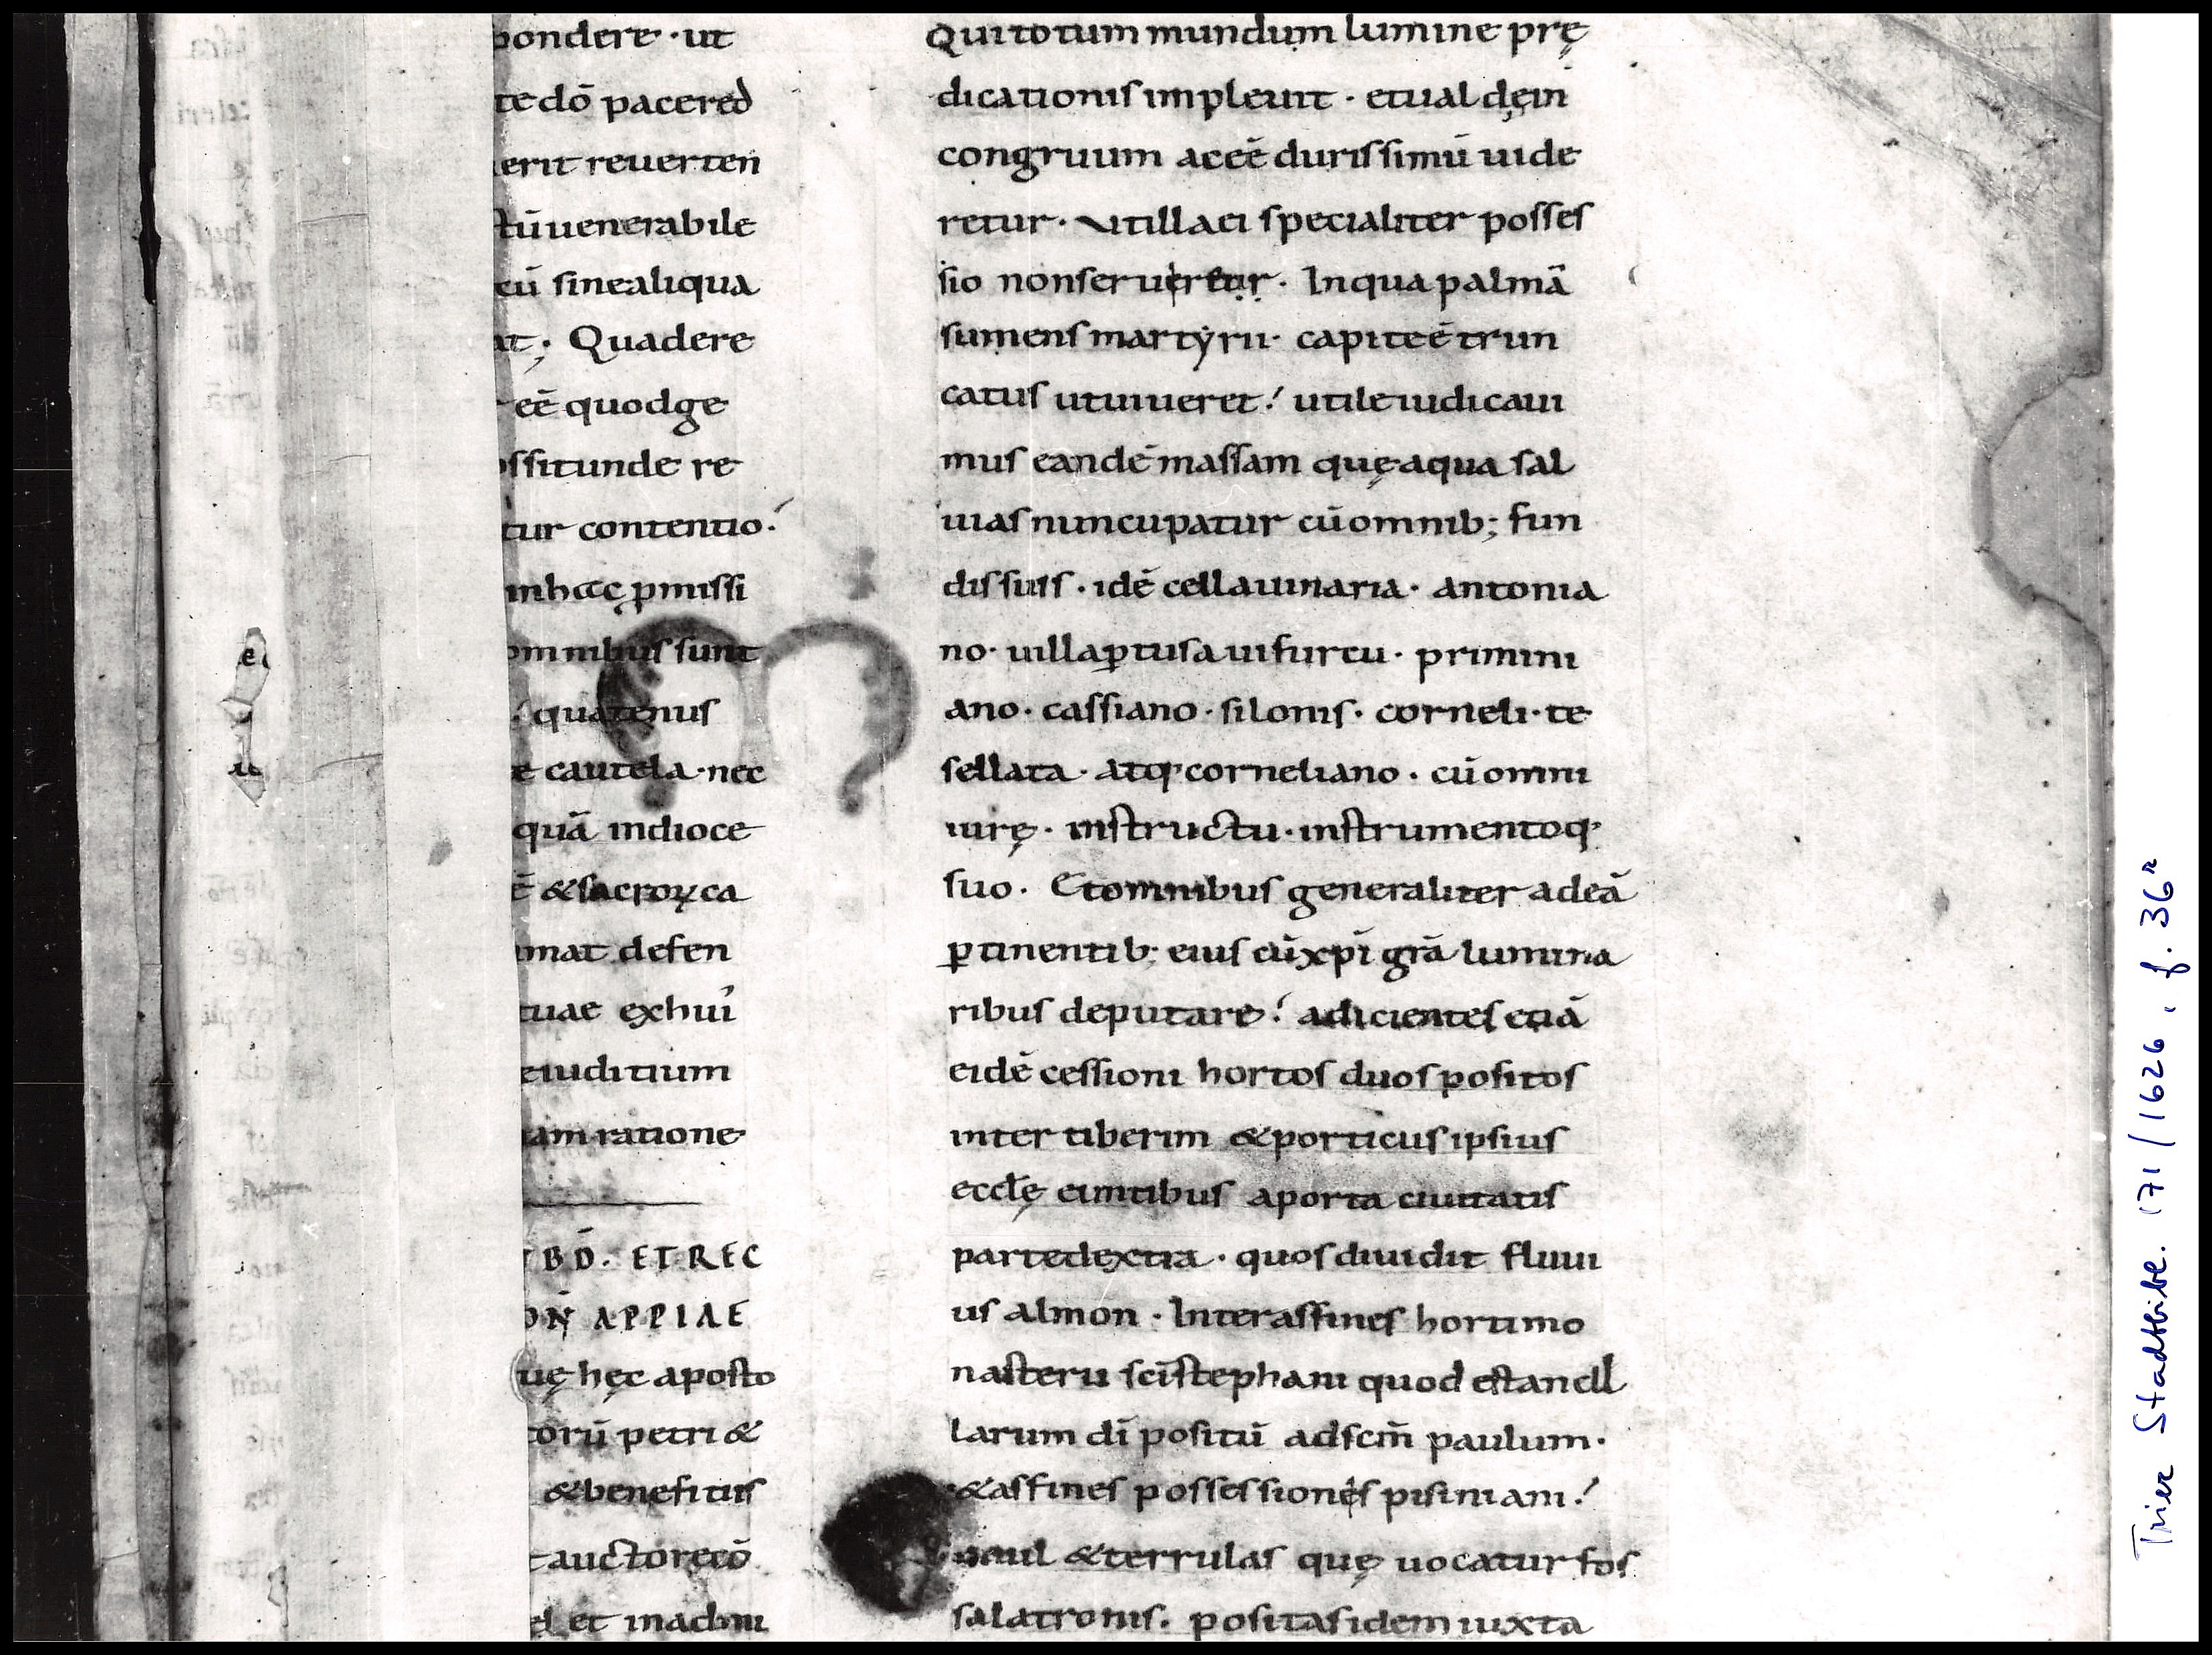 pondere · ut
te dō pacered
erit reuerten
tū uenerabile
cū sinealiqua
at; Quadere
eē quodge
ossitunde re
tur contentio!
inhac ꝓmissi
omnibus sunt
quatenus
e cautela · nec
quā indioce
ē &sacroꝝca
imat defen
tuae exhui
eiuditium
iam ratione
BD. ET REC
ON APPIAE
uę hęc aposto
torū petri &
&benefitiis
t auctorecō
et inachiu
Qui totum mundum lumine prę
dicationis impleuit · etual dein
congruum aceē durissimū uide
retur · Utilla ei specialiter posses
sio nonseruiretur · Inqua palmā
sumens martyrii · capiteē trun
catus utuiueret! utile iudicaui
mus eandē massam quę aqua sal
uias nuncupatur cū omnib; fun
dis suis · idē cella uinaria · antonia
no · uillaꝑtusa uifurcu · primini
ano · cassiano · silonis · corneli · te
sellata · atq; corneliano · cū omni
iurę · instructu · instrumentoq;
suo · Etomnibus generaliter adeā
ꝑtinentib; eius cū xpī grā lumina
ribus deputare! adicientes etiā
eidē cessioni hortos duos positos
inter tiberim &porticus ipsius
ecclę euntibus aporta ciuitatis
partedextra · quos diuidit fluui
us almon · Inter affines horti mo
nasterii scī stephani quod est ancil
larum dī positū ad scm̄ paulum ·
&affines possessiones pisiniani!
simul &terrulas quę uocatur fos
salatronis. positas idem iuxta
Trier Stadtbibl. 171/1626, f. 36r